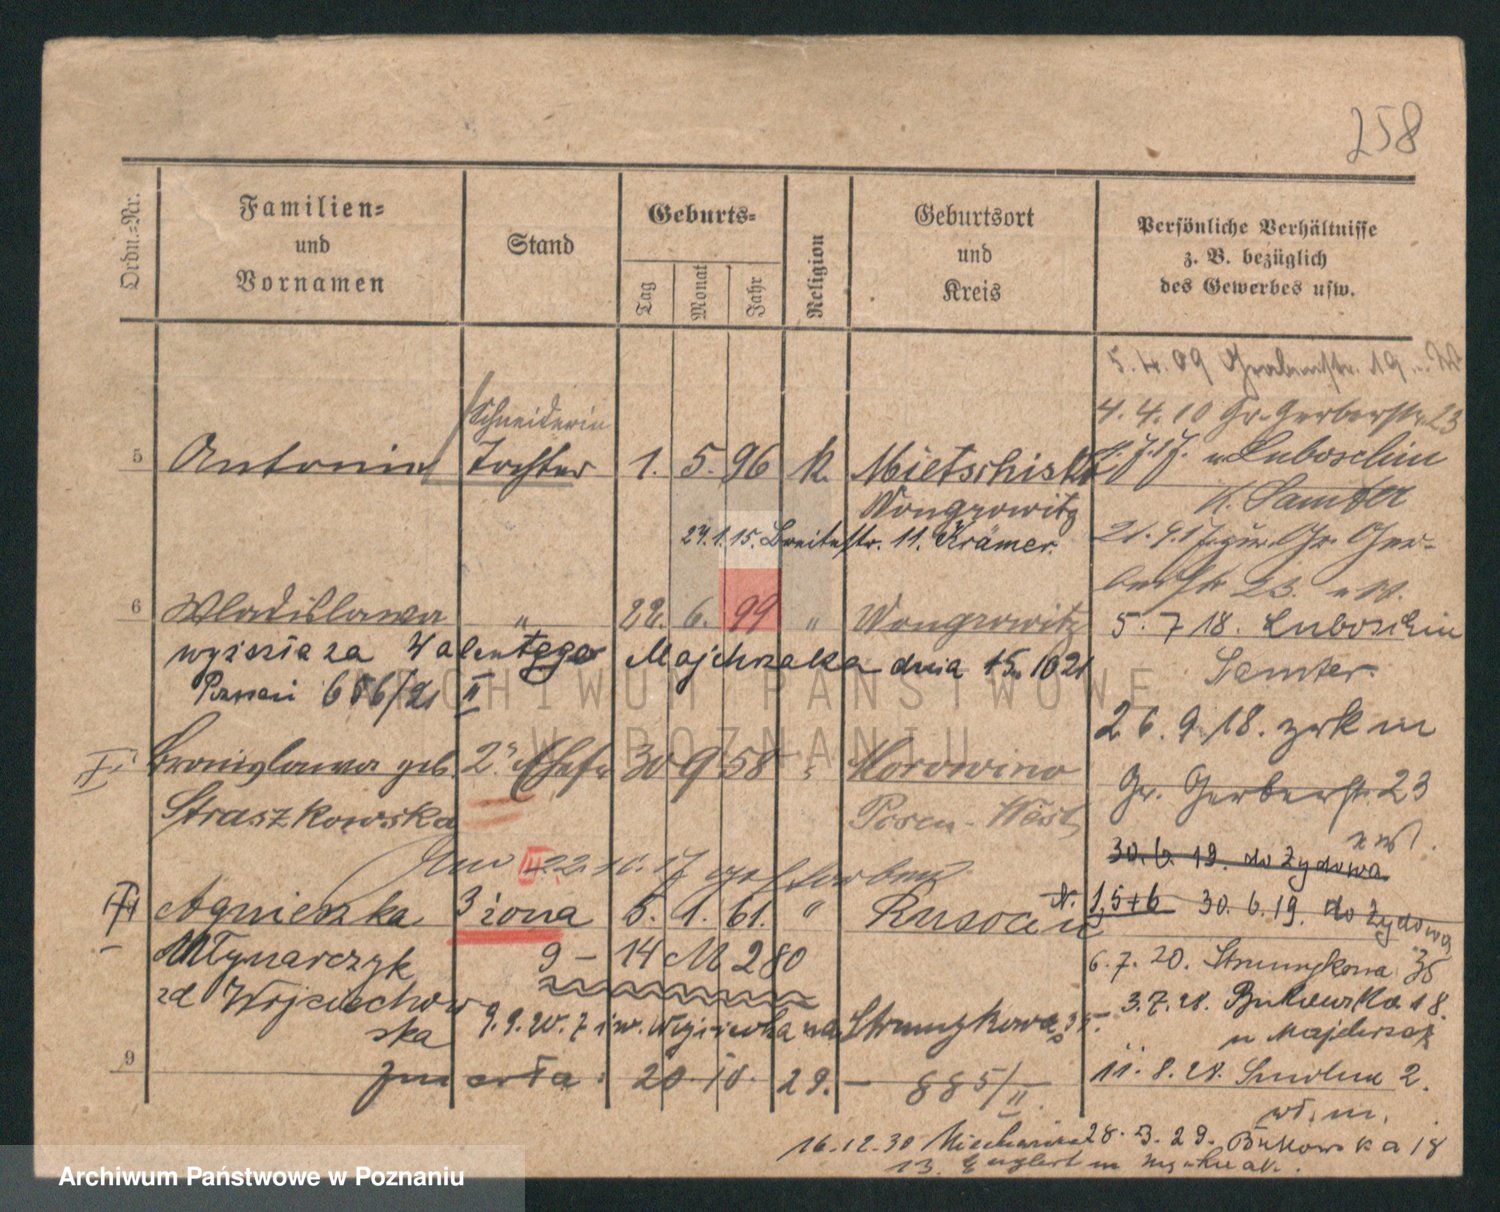 258
Ordn.-Nr.
Familien-
und
Vornamen
Stand
Geburts-
Tag
Monat
Jahr
Religion
Geburtsort
und
Kreis
Persönliche Verhältnisse
z. B. bezüglich
des Gewerbes usw.
5.4.09 Grabenstr. 19
4.4.10 Gr. Gerberstr. 23
Schneiderin
5 Antonia Tochter 1. 5. 96 k. Mietschisk
Luboschin
Wongrowitz
K. Samter
24.1.15. Breitestr. 11. Krämer.
21.9.17 zur. Gr. Ger-
berstr 23.
6 Wladislawa " 22. 6. 99 " Wongrowitz
5. 7 18. Luboschin
wyszła za Walentego Majchrzaka dnia 15. 10 21
Samter.
Poznań 656/21 II
26.9.18. zrk in
Gr. Gerberstr. 23
I Bronislawa geb. 2. Ehefr 30 9 58 "
Straszkowska
Posen-West
30.6.19. do Żydowa
22.10.17 gestorben
N. 1,5+6 30.6.19. do Żydowa
Agnieszka 3 żona 5. 1. 61. "
Młynarczyk 9 - 14 M 280
6.7.20. Strumykowa 35
zd Wojciechow
ska
3.7.28. Bukowska 18.
9.9.20. Strumykowa 35.
9 zmarła. 20. 10. 29. - 885/II.
11.8.28. 2.
28.3.29. Bukowska 18
16.12.30
13.
ARCHIWUM PAŃSTWOWE
W POZNANIU
Archiwum Państwowe w Poznaniu